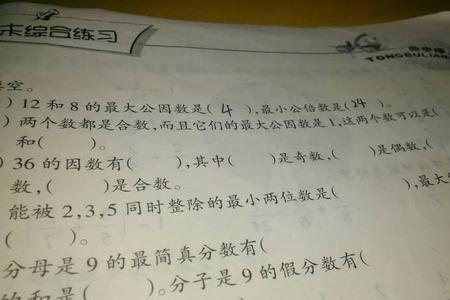 末综合练习
TONGBULIAN
空。
) 12 和 8 的最大公因数是( 4 ),最小公倍数是(24 )。
) 两个数都是合数,而且它们的最大公因数是 1,这两个数可以是(
和( )。
) 36 的因数有( ),其中( )是奇数,( )是偶数,(
数,( )是合数。
能被 2,3,5 同时整除的最小两位数是( ),最大
( )。
分母是 9 的最简真分数有(
的和是( )。分子是 9 的假分数有(